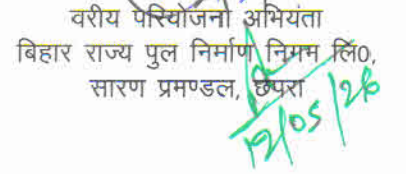 वरीय परियोजना अभियंता
बिहार राज्य पुल निर्माण निगम लि0,
सारण प्रमण्डल, छपरा
12/05/26